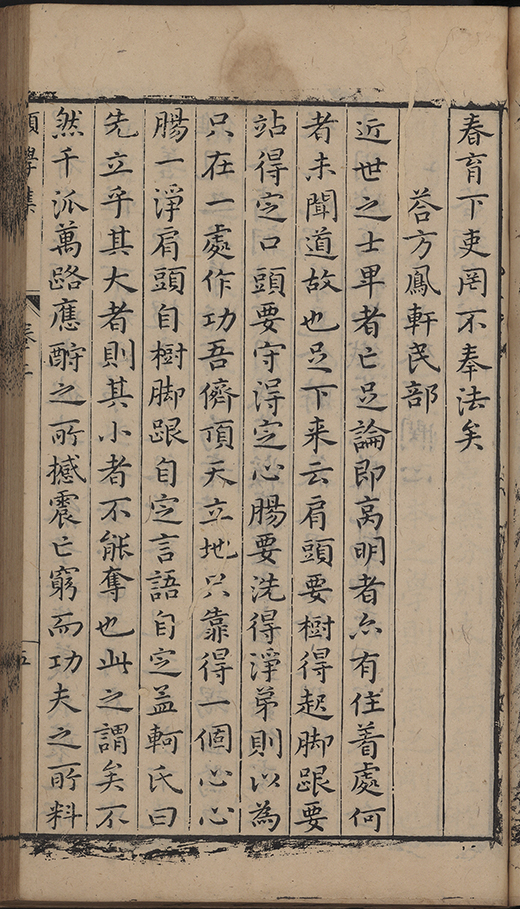 春育下吏罔不奉法矣
荅方鳳軒民部
近世之士卑者亡足論即高明者亦有住著處何
者未聞道故也足下来云肩頭要樹得起脚跟要
站得定口頭要守得定心腸要洗得淨弟則以為
只在一處作功吾儕頂天立地只靠得一個心心
腸一淨肩頭自樹脚跟自定言語自定盖軻氏曰
先立乎其大者則其小者不能奪也此之謂矣不
然千泒萬路應酧之所撼震亡窮而功夫之所料
學集
卷十二
五